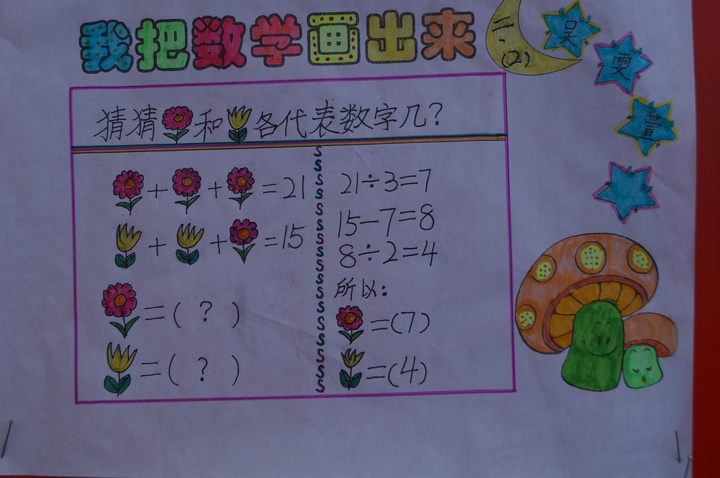 我把数学画出来
二.(2)
吴
雯
萱
猜猜 和 各代表数字几?
+ + =21
+ + =15
=( ? )
=( ? )
21÷3=7
15-7=8
8÷2=4
所以:
=(7)
=(4)